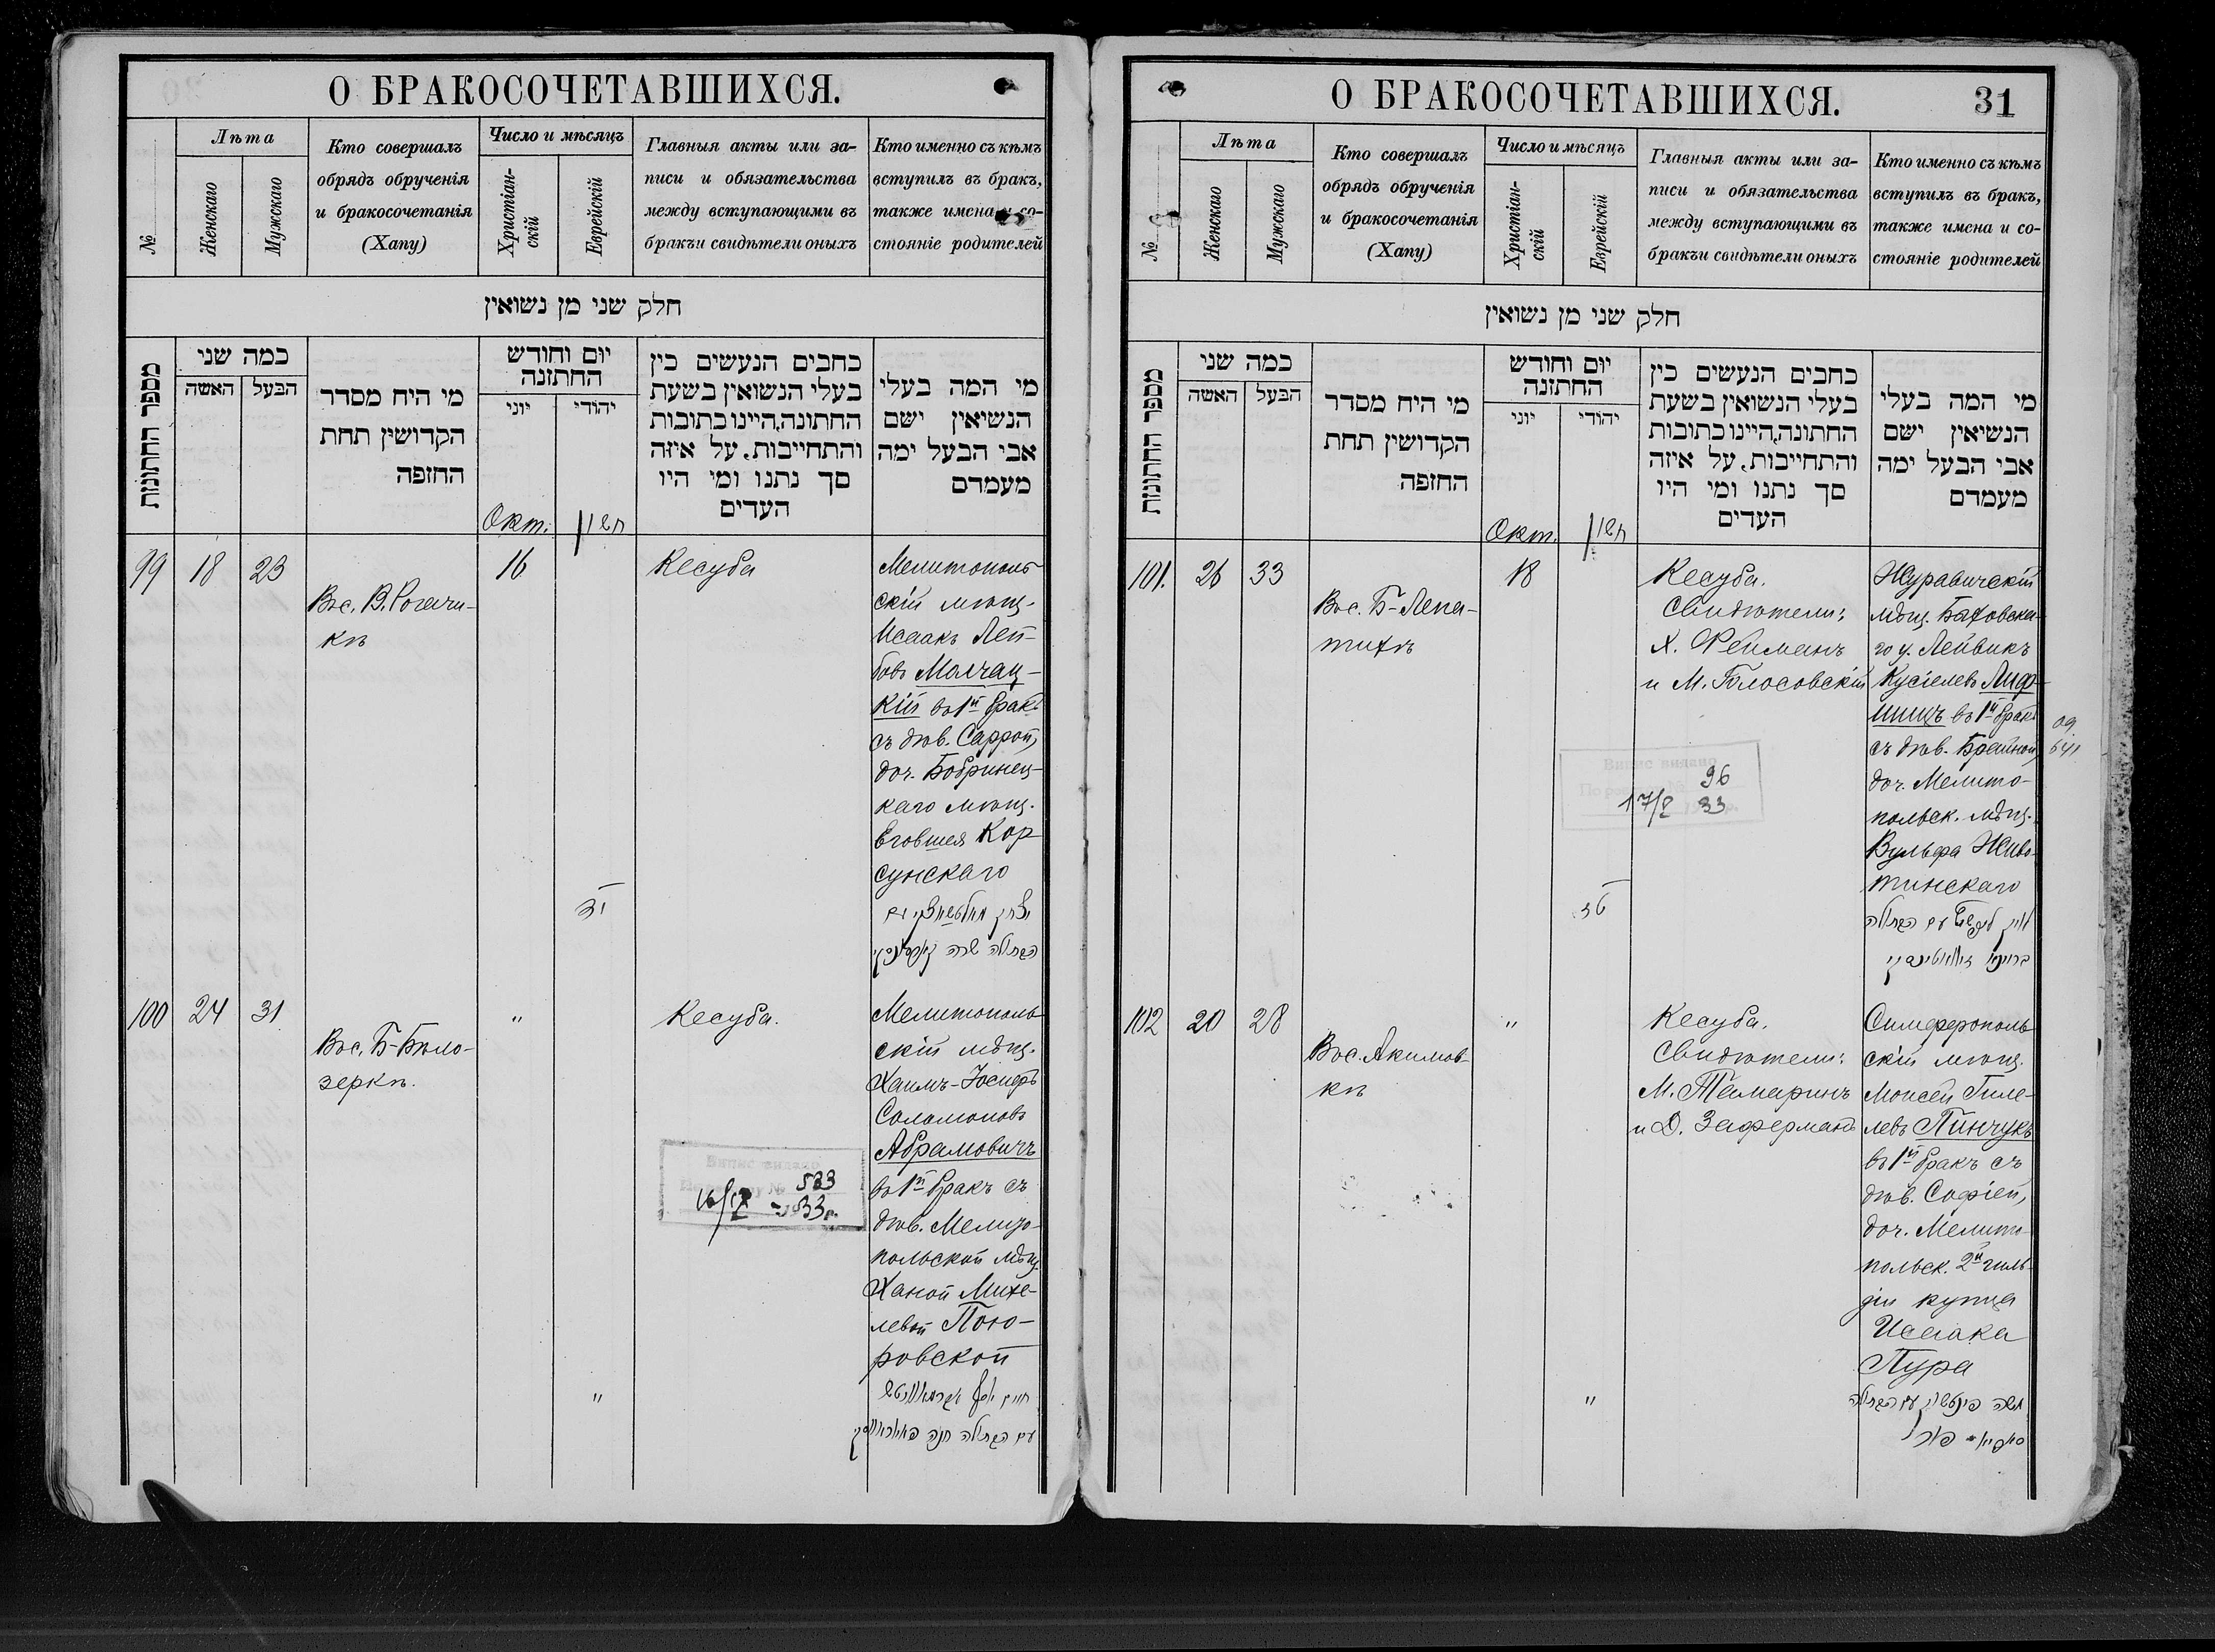 О БРАКОСОЧЕТАВШИХСЯ.
№
Лѣта
Женскаго
Мужскаго
Кто совершалъ
обрядъ обрученія
и бракосочетанія
(Хапу)
Число и мѣсяцъ
Христіан-
скій
Еврейскій
Главныя акты или за-
писи и обязательства
между вступающими въ
бракъи свидѣтели оныхъ
Кто именно съ кѣмъ
вступилъ въ бракъ,
также имена и со-
стояніе родителей
חלק שני מן נשואין
מספר החתונות
כמה שני
האשה
הבעל
מי היח מסדר
הקדושין תחת
החזפה
יום וחודש
החתזנה
יוני
יהודי
כחבים הנעשים כין
בעלי הנשואין בשעת
החתונה,היינו כתובות
והתחייבות. על איזה
סך נתנו ומי היו
העדים
מי המה בעלי
הנשיאין ישם
אבי הבעל ימה
מעמדם
Окт.
חשון
99
18
23
Вос. В. Рогачи-
кѣ
16
Кесуба
Мелитополь
скій мѣщ.
Исаакъ Леи-
бовъ Малчац-
кій въ 1й бракъ
съ дѣв. Саррой,
доч. Бобринец-
каго мѣщ.
Еговшея Кор
сунскаго
100
24
31
Вос. Б-Бѣло-
зеркѣ.
"
Кесуба.
Мелитополь
скій мѣщ.
Хаимъ-Іосифъ
Соломоновъ
Абрамовичъ
въ 1й бракъ съ
дѣв. Мелито-
польской мѣщ.
Ханой Михе-
левой Пою-
ровской
"
Випис видано
533
33 р.
О БРАКОСОЧЕТАВШИХСЯ.
31
№
Лѣта
Женскаго
Мужскаго
Кто совершалъ
обрядъ обрученія
и бракосочетанія
(Хапу)
Число и мѣсяцъ
Христіан-
скій
Еврейскій
Главныя акты или за-
писи и обязательства
между вступающими въ
бракъи свидѣтели оныхъ
Кто именно съ кѣмъ
вступилъ въ бракъ,
также имена и со-
стояніе родителей
חלק שני מן נשואין
מספר החתונות
כמה שני
האשה
הבעל
מי היח מסדר
הקדושין תחת
החזפה
יום וחודש
החתזנה
יוני
יהודי
כחבים הנעשים כין
בעלי הנשואין בשעת
החתונה,היינו כתובות
והתחייבות. על איזה
סך נתנו ומי היו
העדים
מי המה בעלי
הנשיאין ישם
אבי הבעל ימה
מעמדם
Окт.
חשון
101.
26
33
Вос. Б-Лепа-
тихѣ
18
Кесуба.
Свидѣтели:
Х. Фейманъ
и М. Голосовскій
Журавичскій
мѣщ. Быховска-
го у. Лейвикъ
Кусіелевъ Лиф-
шицъ въ 1й бракъ
съ дѣв. Брейной,
доч. Мелито-
польск. мѣщ.
Вульфа Живо-
тинскаго
Випис видано
96
33
102
20
28
Вос. Акимов-
кѣ
"
Кесуба.
Свидѣтели:
М. Тамаринъ
и Д. Заферманъ
Симферополь
скій мѣщ.
Моисей Гиле-
левъ Пинчукъ
въ 1й бракъ съ
дѣв. Софіей,
доч. Мелито-
польск. 2й гиль-
діи купца
Исаака
Пура
"